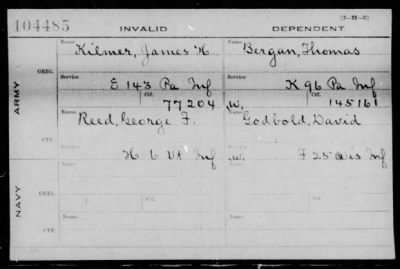 104485
INVALID
DEPENDENT
(3-H-5)
Name
Kilmer, James H.
Name
Bergan, Thomas
ORIG.
Service
E 143 Pa Inf
Service
K 96 Pa Inf
Ctf.
77204
W.
Ctf.
145161
ARMY
Name
Reed, George F.
Name
Godbold, David
CTF.
H 6 Vt Inf
W.
F 25 Wis Inf
NAVY
Name
Name
ORIG.
Service
Service
Name
CTF.